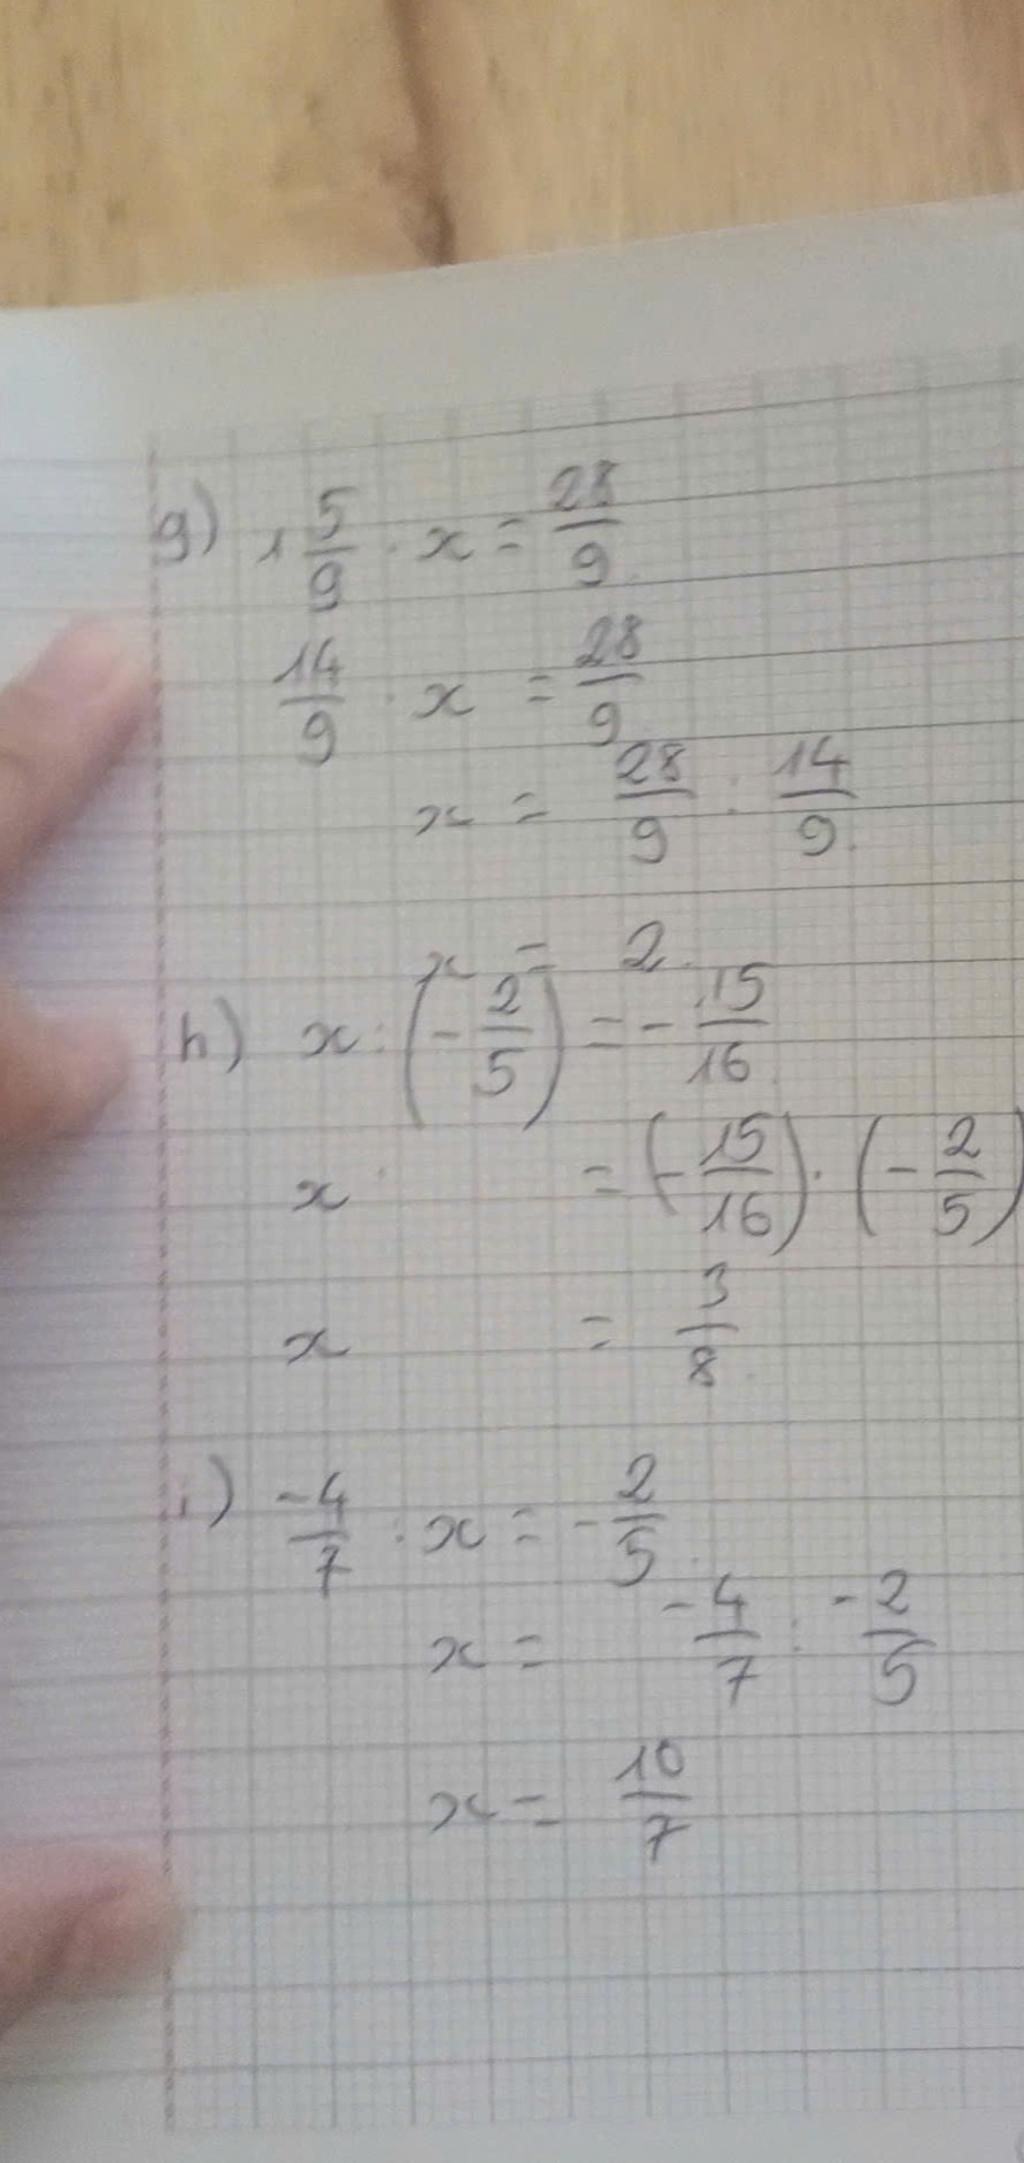 g) 1 5/9 · x = 28/9
14/9 · x = 28/9
x = 28/9 : 14/9
x = 2
h) x : (-2/5) = -15/16
x = (-15/16) · (-2/5)
x = 3/8
i) -4/7 : x = -2/5
x = -4/7 : -2/5
x = 10/7